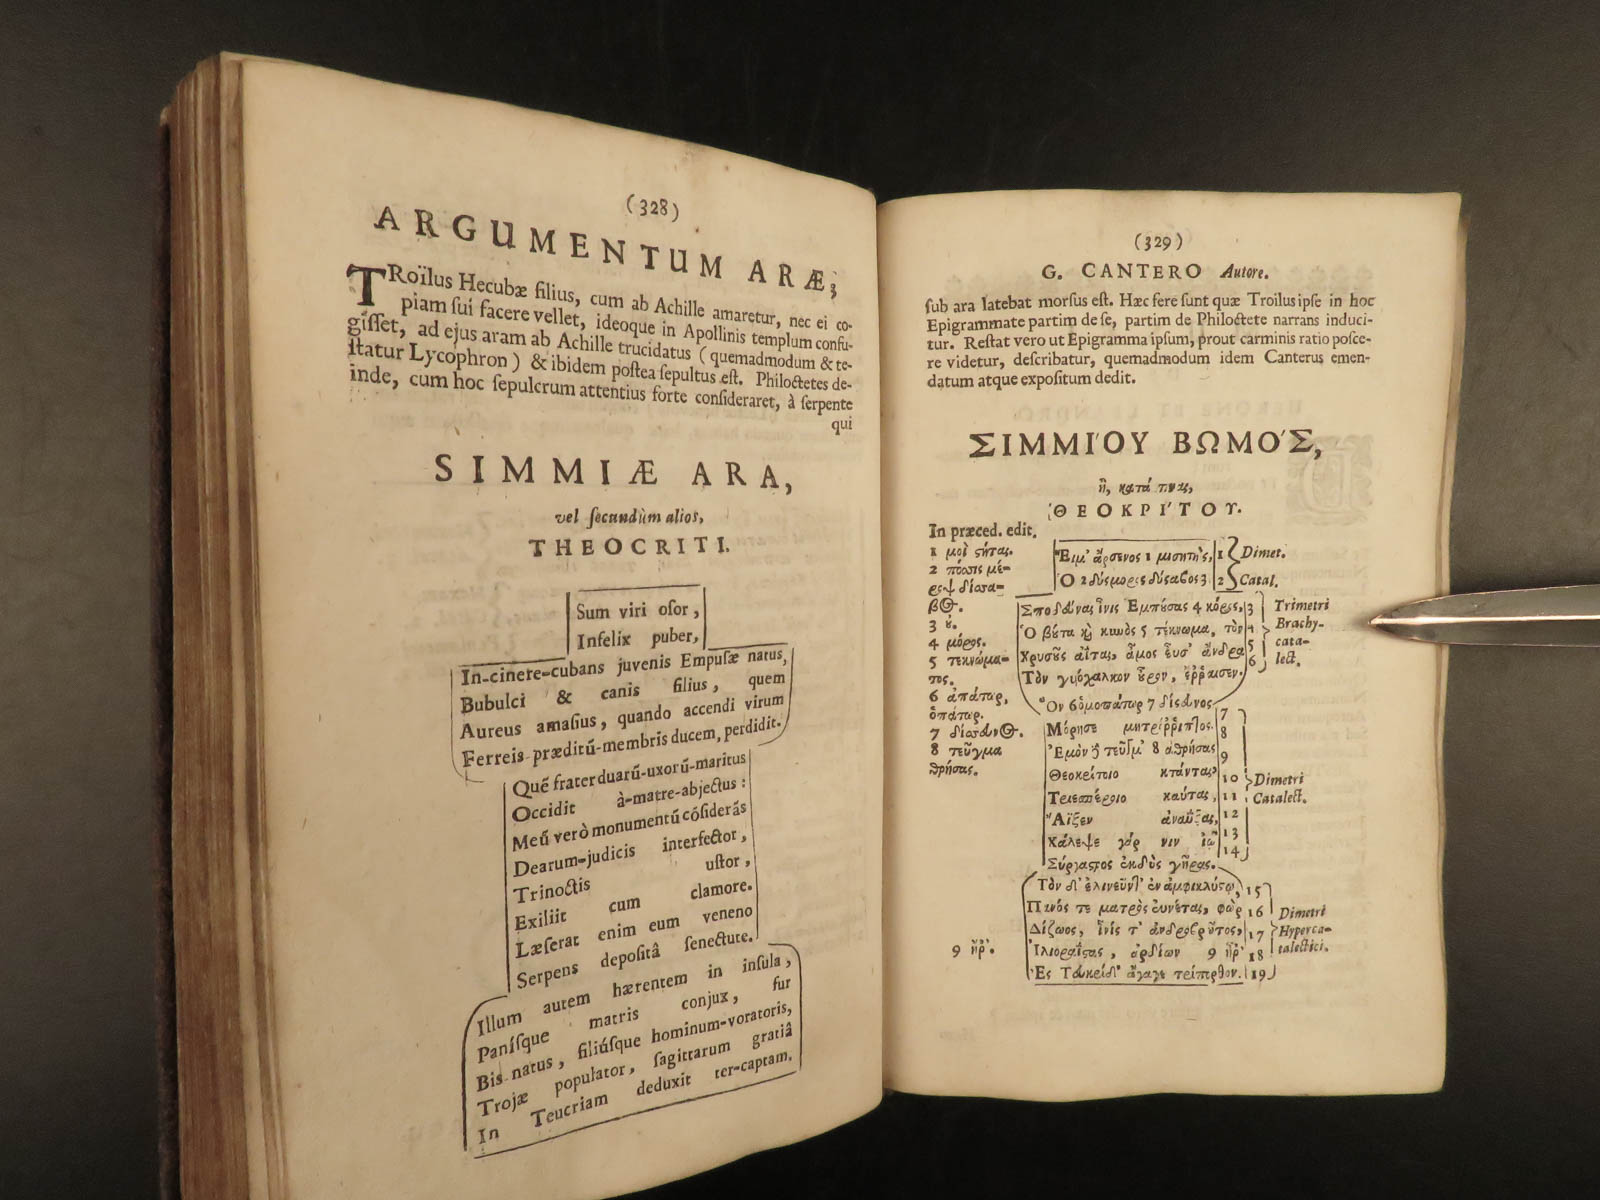 (328)
ARGUMENTUM ARÆ,
TRoïlus Hecubæ filius, cum ab Achille amaretur, nec ei co-
piam sui facere vellet, ideoque in Apollinis templum confu-
gisset, ad ejus aram ab Achille trucidatus (quemadmodum & te-
statur Lycophron) & ibidem postea sepultus est. Philoctetes de-
inde, cum hoc sepulcrum attentius forte consideraret, à serpente
qui
SIMMIÆ ARA,
vel secundùm alios,
THEOCRITI.
Sum viri osor,
Infelix puber,
In-cinere-cubans juvenis Empusæ natus,
Bubulci & canis filius, quem
Aureus amasius, quando accendi virum
Ferreis præditū-membris ducem, perdidit.
Quē frater duarū-uxorū-maritus
Occidit à-matre-abjectus:
Meū verò monumentū cōsiderās
Dearum-judicis interfector,
Trinoctis ustor,
Exiliit cum clamore.
Læserat enim eum veneno
Serpens depositâ senectute.
Illum autem hærentem in insula,
Panísque matris conjux, fur
Bis natus, filiúsque hominum-voratoris,
Trojæ populator, sagittarum gratiâ
In Teucriam deduxit ter-captam.
(329)
G. CANTERO Autore.
sub ara latebat morsus est. Hæc fere sunt quæ Troilus ipse in hoc
Epigrammate partim de se, partim de Philoctete narrans induci-
tur. Restat vero ut Epigramma ipsum, prout carminis ratio posce-
re videtur, describatur, quemadmodum idem Canterus emen-
datum atque expositum dedit.
ΣΙΜΜΙΌΥ ΒΩΜΟΣ,
ἢ, κατά τινας,
ΘΕΟΚΡΙΤΟΥ.
In præced. edit.
1 μοὶ στήτας.
2 πόσις μέ-
ροψ δίσα-
βος.
3 ὁ.
4 μόρος.
5 τεκνώμα-
τος.
6 ἀπάτωρ,
ὁπάτωρ.
7 δίσευνος.
8 τεῦγμα
θρήσας.
9 ἦρ.
Εἰμ' ἄρσενος 1 μισητής, 1 Dimet.
Ὁ 2 δύσμορος δύσαβος 3 2 Catal.
Σποδεύνας ἶνις Ἐμπούσας 4 κόρος, 3 Trimetri
Ὁ βούτα καὶ κυνὸς 5 τέκνωμα, τὸν 4 Brachy-
Χρυσοῦς ἀΐτας, ἇμος εὗσ' ἄνδρα 5 cata-
Τὸν γυιόχαλκον οὖρον, ἔῤῥαισεν. 6 lect.
Ὃν 6 ὁμοπάτωρ 7 δίσευνος 7
Μόρησε μητρίῤῥιπτος. 8
Ἐμὸν δὲ τεῦγμ' 8 ἀθρήσας 9
Θεοκρίτοιο κτάντας 10 Dimetri
Τριεσπέροιο καύτας, 11 Catalect.
Ἄϊξεν ἀναΰξας, 12
Χάλεψε γάρ νιν ἰῷ 13
Σύργαστρος ἐκδὺς γῆρας. 14
Τὸν δ' ἐλινεῦντ' ἐν ἀμφικλύστῳ, 15
Πανός τε ματρὸς εὐνέτας, φὼρ 16 Dimetri
Δίζωος, ἶνίς τ' ἀνδροβρῶτος, 17 Hyperca-
Ἰλιοραίστας, ἀρδίων 9 ἦρ' 18 talectici.
Ἐς Τευκρίδ' ἄγαγε τρίπερθον. 19